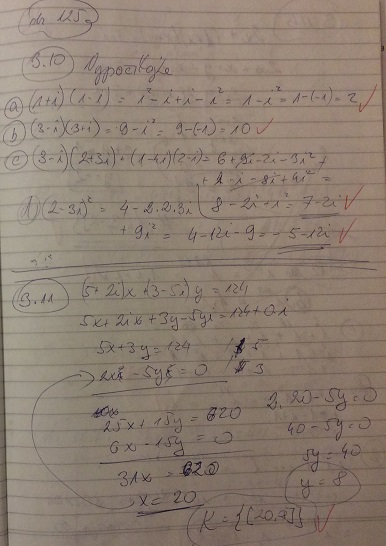 str. 125
3.10
a) (1+i)(1-i) = i² - i + i - i² = 1 - i² = 1-(-1) = 2 ✓
b) (3-i)(3+i) = 9 - i² = 9-(-1) = 10 ✓
c) (3-i)(2+3i) + (1-4i)(2-i) = 6 + 9i - 2i - 3i² +
+ 2 - i - 8i + 4i² =
8 - 2i + i² = 7-2i ✓
d) (2-3i)² = 4 - 2.2.3i
+ 9i² = 4 - 12i - 9 = -5-12i ✓
3.11 (5+2i)x + (3-5i)y = 124
5x + 2ix + 3y - 5yi = 124 + 0.i
5x + 3y = 124 / 5
2x - 5y = 0 / 3
25x + 15y = 620
6x - 15y = 0
31x = 620
x = 20
2. 20 - 5y = 0
40 - 5y = 0
5y = 40
y = 8
K = {[20,8]} ✓